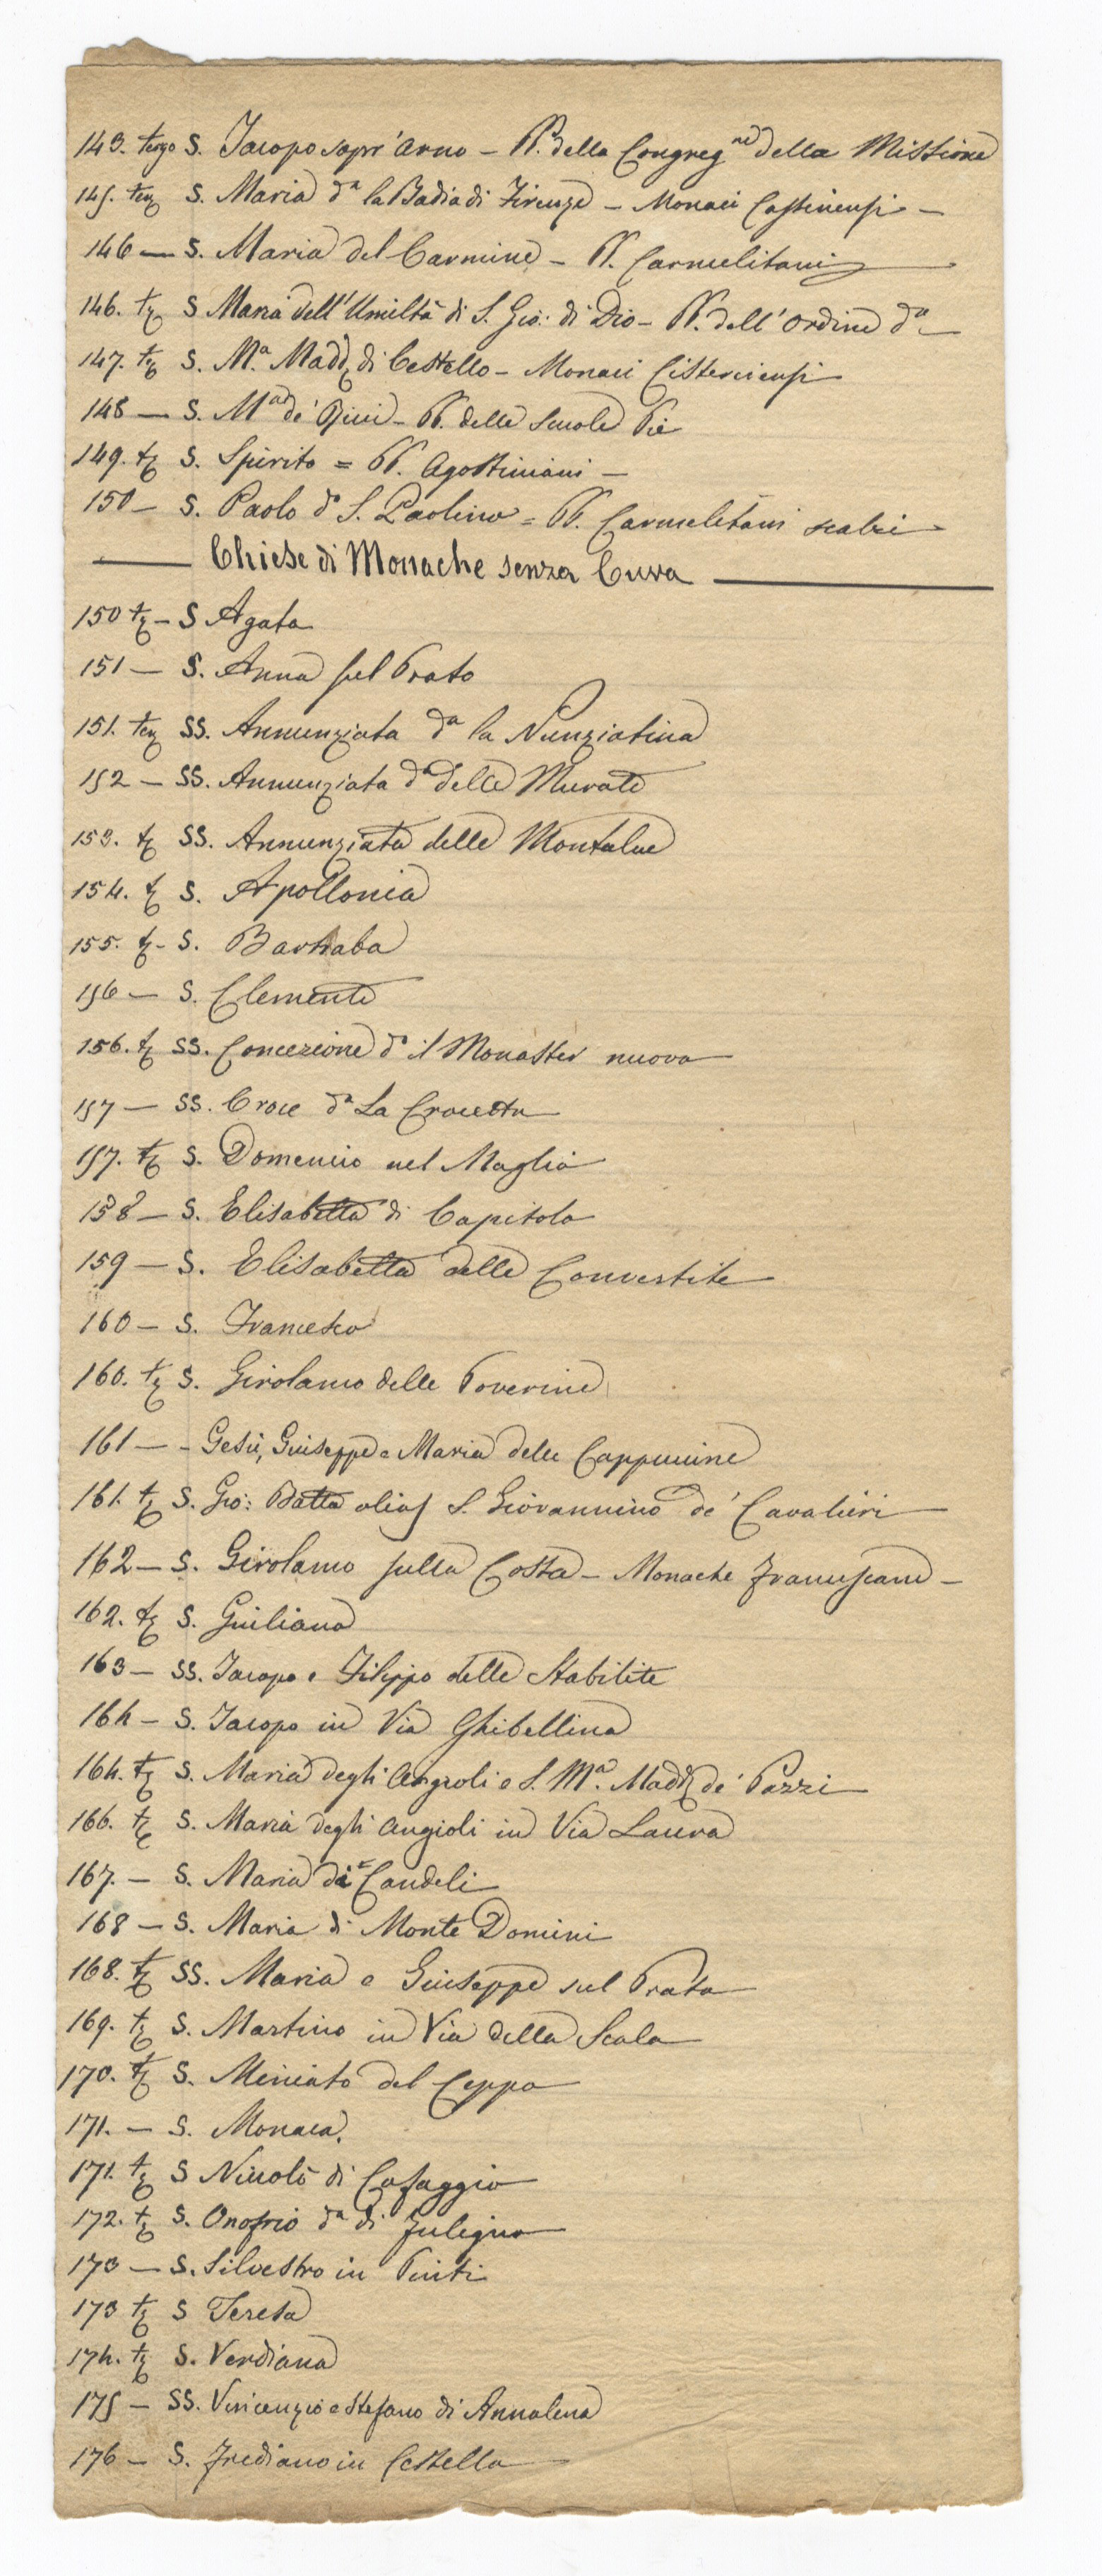 143. tergo S. Jacopo sopr'Arno – PP. della Congreg.ne della Missione
145. terg S. Maria da la Badia di Firenze – Monaci Cassinensi –
146 — S. Maria del Carmine – PP. Carmelitani
146. tg S Maria dell'Umiltà di S. Gio: di Dio – PP. dell'Ordine da –
147. tg S. Ma. Madd di Cestello – Monaci Cisterciensi
148 — S. Ma de' Ricci – PP. delle Scuole Pie
149. tg S. Spirito = PP. Agostiniani –
150 – S. Paolo do S. Paolino = PP. Carmelitani scalzi
Chiese di Monache senza Cura
150 tg – S Agata
151 — S. Anna sul Prato
151. terg SS. Annunziata da la Nunziatina
152 – SS. Annunziata da delle Murate
153. tg SS. Annunziata delle Montalve
154. tg S. Apollonia
155. tg – S. Barnaba
156 — S. Clemente
156. tg SS. Concezione do il Monaster nuovo
157 — SS. Croce da La Crocetta
157. tg S. Domenico nel Maglio
158 – S. Elisabetta di Capitolo
159 — S. Elisabetta delle Convertite
160 – S. Francesco
160. tg S. Girolamo delle Poverine
161 — – Gesù, Giuseppe e Maria delle Cappuccine
161. tg S. Gio: Batta alias S. Giovannino de' Cavalieri
162 – S. Girolamo sulla Costa – Monache Francescane –
162. tg S. Giuliana
163 – SS. Jacopo e Filippo delle Stabilite
164 – S. Jacopo in Via Ghibellina
164. tg S. Maria degli Angioli e S. Ma. Madd de' Pazzi
166. tg S. Maria degli Angioli in Via Laura
167. – S. Maria di Candeli
168 – S. Maria di Monte Domini
168. tg SS. Maria e Giuseppe sul Prato
169. tg S. Martino in Via della Scala
170. tg S. Miniato del Ceppo
171. — S. Monaca.
171. tg S Niccolò di Cafaggio
172. tg S. Onofrio da di Fuligno
173 — S. Silvestro in Pinti
173 tg S Teresa
174. tg S. Verdiana
175 – SS. Vincenzio e Stefano di Annalena
176 – S. Frediano in Cestello